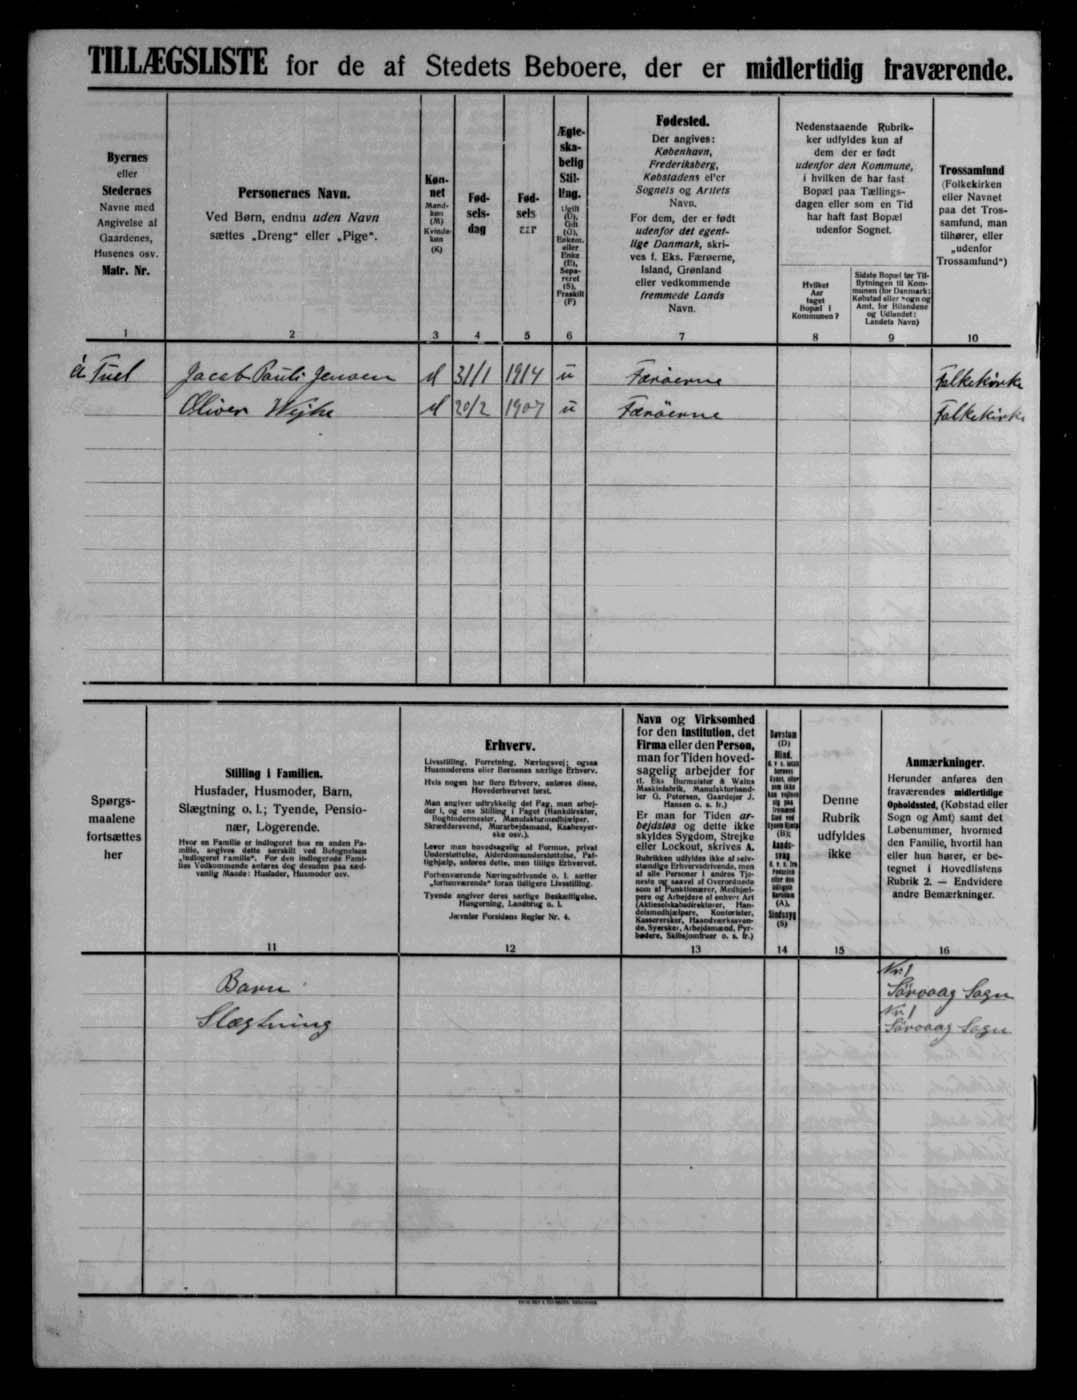 TILLÆGSLISTE for de af Stedets Beboere, der er midlertidig fraværende.
Byernes
eller
Stedernes
Navne med
Angivelse af
Gaardenes,
Husenes osv.
Matr. Nr.
1
Personernes Navn.
Ved Børn, endnu uden Navn
sættes „Dreng“ eller „Pige“.
2
Køn-
net
Mand-
køn
(M)
Kvinde-
køn
(K)
3
Fød-
sels-
dag
4
Fød-
sels
aar
5
Ægte-
ska-
belig
Stil-
ling.
Ugift
(U),
Gift
(G),
Enkem.
eller
Enke
(E),
Sepa-
reret
(S),
Fraskilt
(F)
6
Fødested.
Der angives:
København,
Frederiksberg,
Købstadens eller
Sognets og Amtets
Navn.
For dem, der er født
udenfor det egent-
lige Danmark, skri-
ves f. Eks. Færøerne,
Island, Grønland
eller vedkommende
fremmede Lands
Navn.
7
Nedenstaaende Rubrik-
ker udfyldes kun af
dem der er født
udenfor den Kommune,
i hvilken de har fast
Bopæl paa Tællings-
dagen eller som en Tid
har haft fast Bopæl
udenfor Sognet.
Hvilket
Aar
taget
Bopæl i
Kommunen?
8
Sidste Bopæl før Til-
flytningen til Kom-
munen (for Danmark:
Købstad eller Sogn og
Amt, for Bilandene
og Udlandet:
Landets Navn)
9
Trossamfund
(Folkekirken
eller Navnet
paa det Tros-
samfund, man
tilhører, eller
„udenfor
Trossamfund“)
10
Jacob Pauli Jensen M 31/1 1914 u Færøerne Folkekirke
Oliver Wejhe M 20/2 1907 u Færøerne Folkekirke
Spørgs-
maalene
fortsættes
her
Stilling i Familien.
Husfader, Husmoder, Barn,
Slægtning o. l.; Tyende, Pensio-
nær, Logerende.
Hvor en Familie er indlogeret hos en anden Fa-
milie, angives dette særskilt ved Betegnelsen
„indlogeret Familie“. For den indlogerede Fami-
lies Vedkommende anføres dog desuden paa sæd-
vanlig Maade: Husfader, Husmoder osv.
11
Erhverv.
Livsstilling, Forretning, Næringsvej; ogsaa
Husmoderens eller Børnenes særlige Erhverv.
Hvis nogen har flere Erhverv, anføres disse,
Hovederhvervet først.
Man angiver udtrykkelig det Fag, man arbej-
der i, og ens Stilling i Faget (Bankdirektør,
Boghindermester, Manufakturmedhjælper,
Skræddersvend, Murarbejdsmand, Kaabesyer-
ske osv.).
Lever man hovedsagelig af Formue, privat
Understøttelse, Alderdomsunderstøttelse, Fat-
tighjælp, anføres dette, men tillige Erhvervet.
Forhenværende Næringsdrivende o. l. sætter
„forhenværende“ foran tidligere Livsstilling.
Tyende angiver deres særlige Beskæftigelse,
Husgerning, Landbrug o. l.
Jævnfør Forsidens Regler Nr. 4.
12
Navn og Virksomhed
for den Institution, det
Firma eller den Person,
man for Tiden hoved-
sagelig arbejder for
(f. Eks. Burmeister & Wains
Maskinfabrik, Manufakturhand-
ler G. Petersen, Gaardejer J.
Hansen o. s. fr.)
Er man for Tiden ar-
bejdsløs og dette ikke
skyldes Sygdom, Strejke
eller Lockout, skrives A.
Rubrikken udfyldes ikke af selv-
stændige Erhvervsdrivende, men
af alle Personer i andres Tje-
neste og saavel af Overordnede
som af Funktionærer, Medhjæl-
pere og Arbejdere af enhver Art
(Aktieselskabsdirektører, Han-
delsmedhjælpere, Kontorister,
Kasserersker, Haandværkssven-
de, Syersker, Arbejdsmænd, Fyr-
bødere, Skibsjomfruer o. s. fr.)
13
Døvstum
(D)
Blind,
(B)
Aands-
svag
(A),
Sindssyg
(S)
14
Denne
Rubrik
udfyldes
ikke
15
Anmærkninger.
Herunder anføres den
fraværendes midlertidige
Opholdssted, (Købstad eller
Sogn og Amt) samt det
Løbenummer, hvormed
den Familie, hvortil han
eller hun hører, er be-
tegnet i Hovedlistens
Rubrik 2. — Endvidere
andre Bemærkninger.
16
Barn Nr. 1
Sörvaag Sogn
Slægtning Nr. 1
Sörvaag Sogn